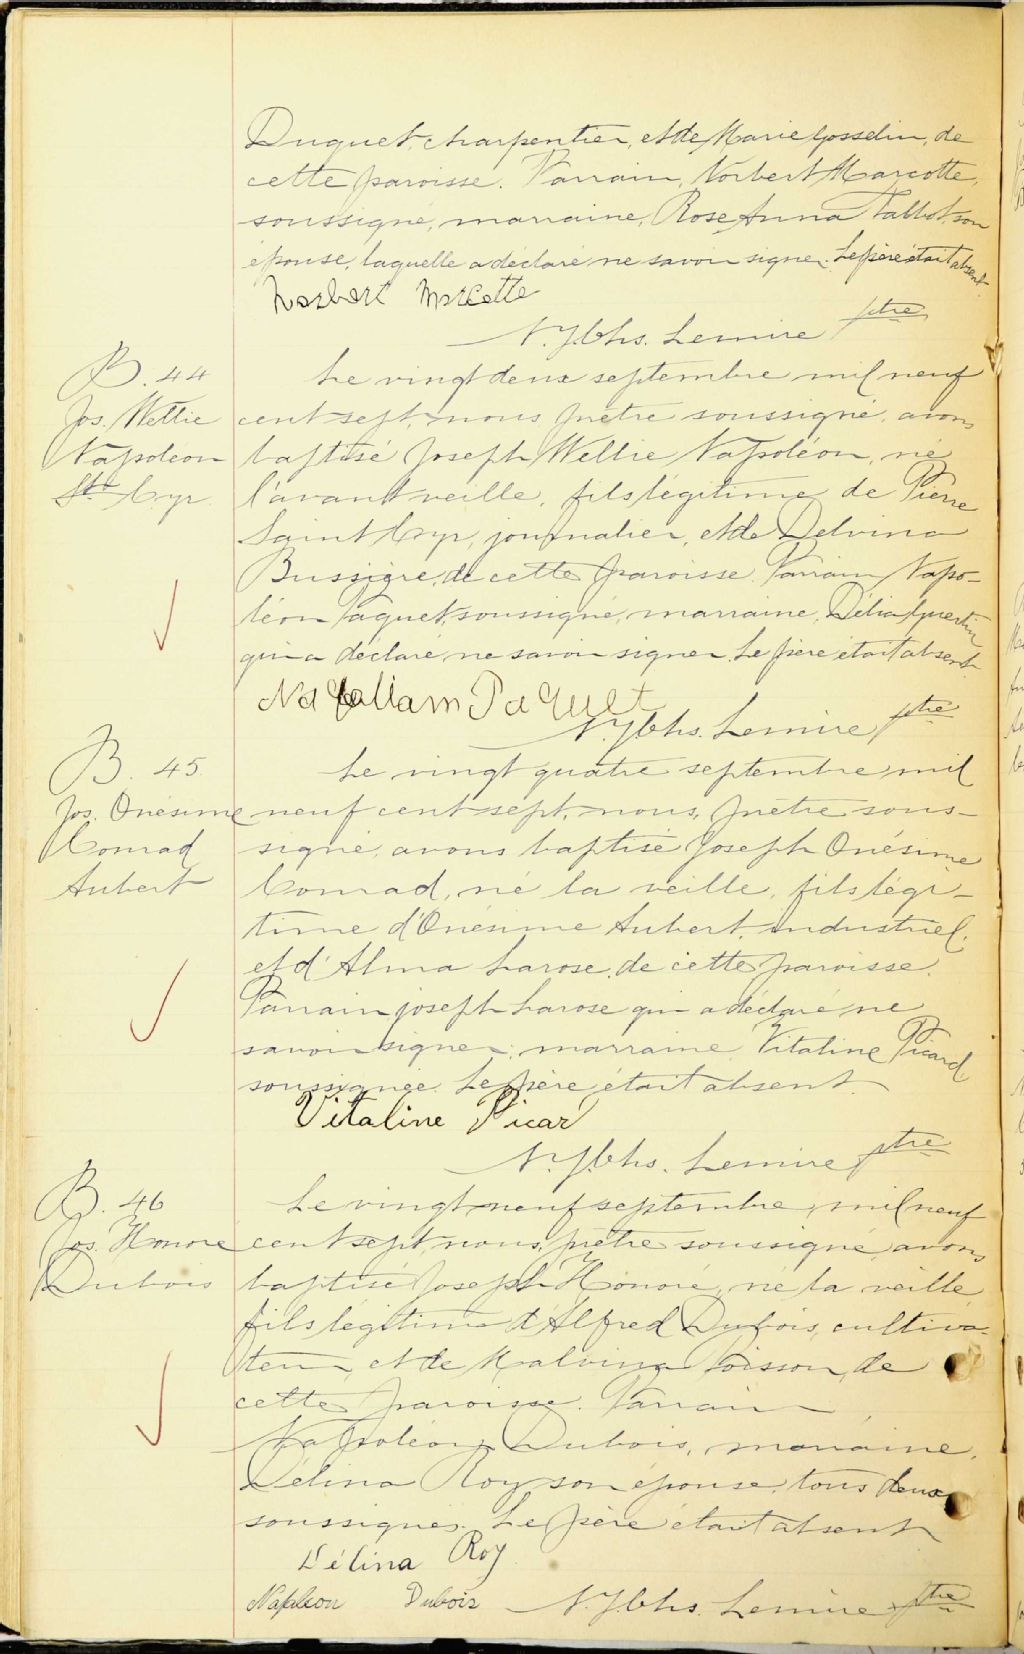 Duquet, charpentier, et de Marie Gosselin, de
cette paroisse. Parrain, Norbert Marcotte,
soussigné, marraine, Rose Anna Talbot, son
épouse, laquelle a déclaré ne savoir signer. Le père était absent.
Norbert Marcotte
N. J. Chs. Lemire ptre
B. 44
Jos. Wellie
Napoléon
St Cyr
Le vingt deux septembre mil neuf
cent sept, nous prêtre soussigné, avons
baptisé Joseph Wellie Napoléon, né
l'avant veille, fils légitime de Pierre
Saint Cyr, journalier, et de Delvina
Bussière, de cette paroisse. Parrain Napo-
léon Paquet, soussigné, marraine, Délia Guertin
qui a déclaré ne savoir signer. Le père était absent.
Paquet
N. J. Chs. Lemire ptre
B. 45
Jos. Onésime
Conrad
Aubert
Le vingt quatre septembre mil
neuf cent sept, nous, prêtre sous-
signé, avons baptisé Joseph Onésime
Conrad, né la veille, fils légi-
time d'Onésime Aubert, industriel,
et d'Alma Larose, de cette paroisse.
Parrain Joseph Larose qui a déclaré ne
savoir signer, marraine, Vitaline Picard
soussignée. Le père était absent.
Vitaline Picar
N. J. Chs. Lemire ptre
B. 46
Jos. Honoré
Dubois
Le vingt neuf septembre, mil neuf
cent sept, nous, prêtre soussigné, avons
baptisé Joseph Honoré, né la veille,
fils légitime d'Alfred Dubois, cultiva-
teur, et de Malvina Poisson, de
cette paroisse. Parrain
Napoléon Dubois, marraine,
Délina Roy son épouse, tous deux
soussignés. Le père était absent
Délina Roy
Napoleon Dubois N. J. Chs. Lemire ptre